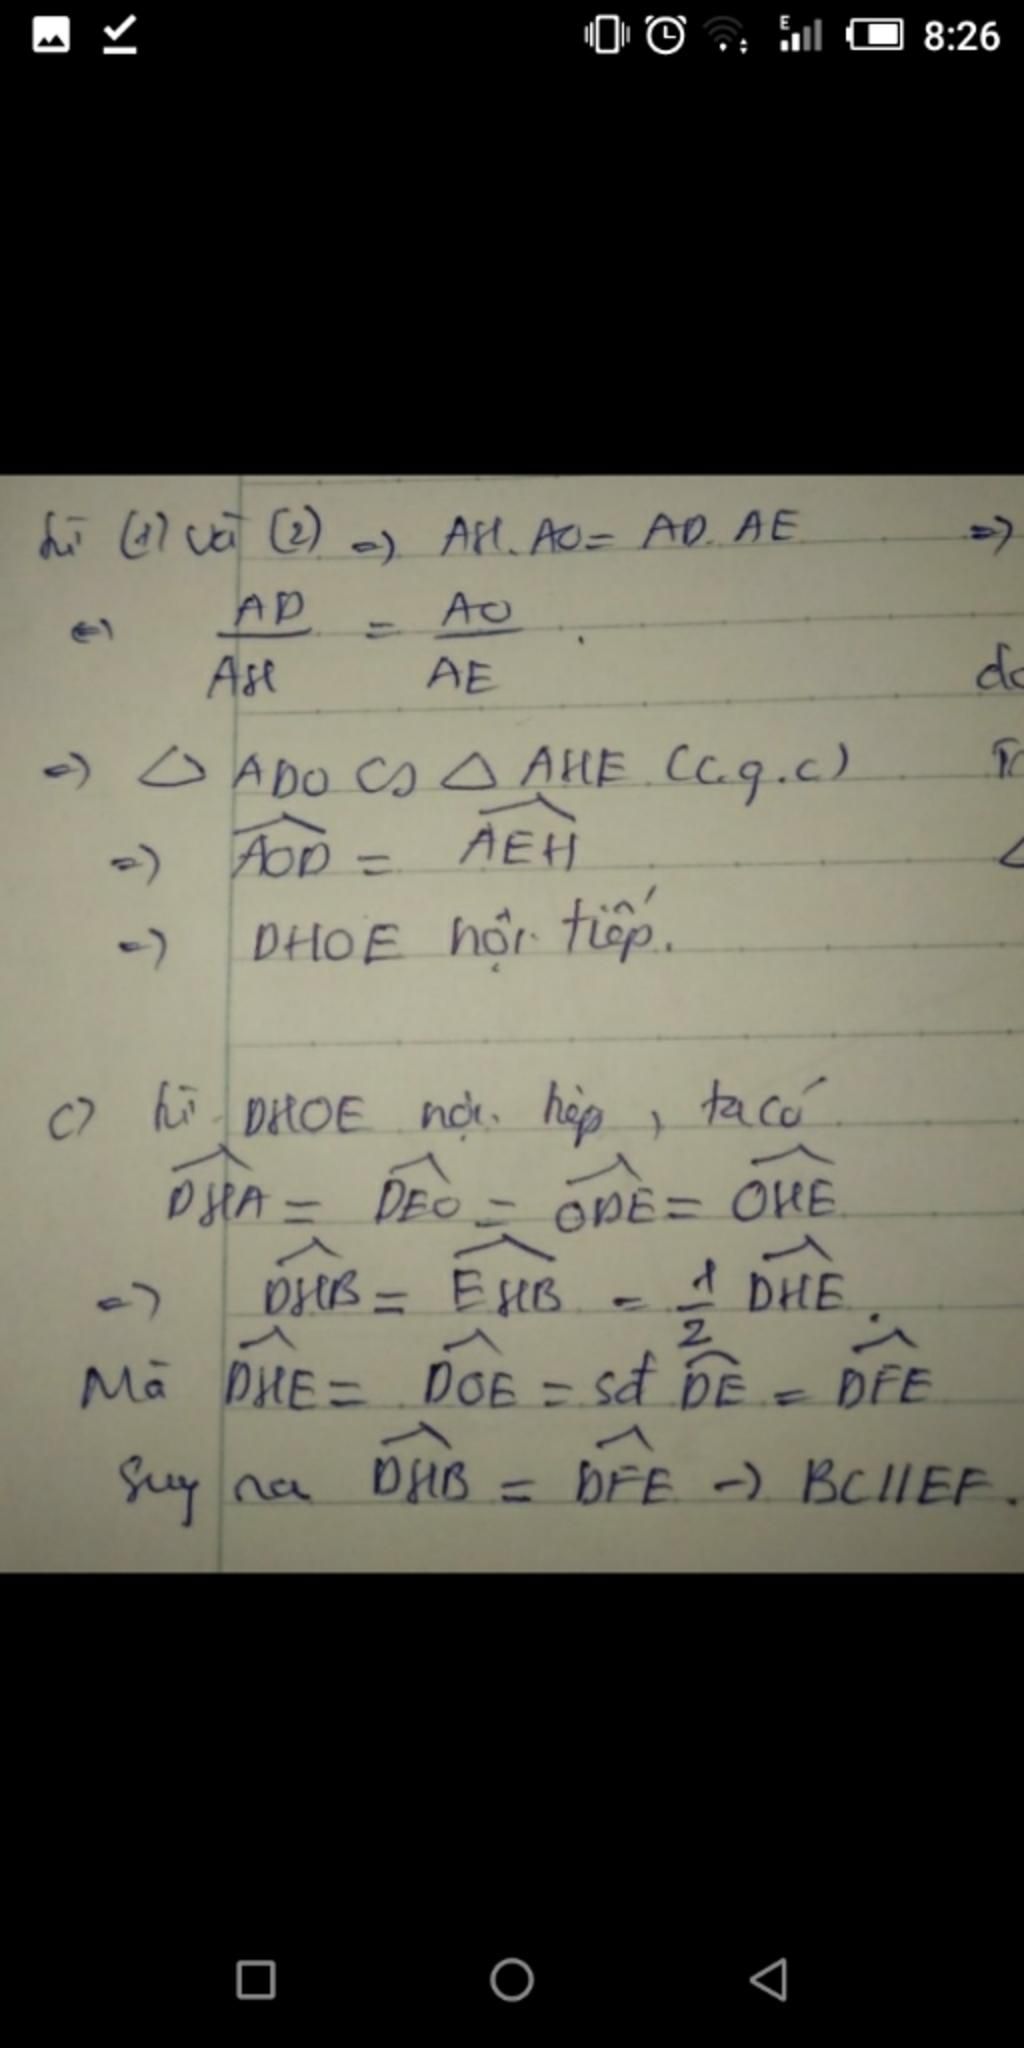 8:26
từ (1) và (2) => AH. AO = AD. AE =>
<=> AD/AH = AO/AE .
=> △ ADO ∽ △ AHE (c.g.c)
=> \widehat{AOD} = \widehat{AEH}
△
=> DHOE nội tiếp.
c) từ DHOE nội tiếp, ta có
\widehat{DHA} = \widehat{DEO} = \widehat{ODE} = \widehat{OHE}
=> \widehat{DHB} = \widehat{EHB} = 1/2 \widehat{DHE}.
Mà \widehat{DHE} = \widehat{DOE} = sđ \widehat{DE} = \widehat{DFE}
Suy ra \widehat{DHB} = \widehat{DFE} -> BC//EF.